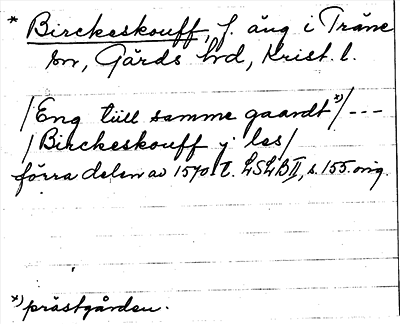 * Birckeskouff, f. äng i Träne
sn, Gärds hd, Krist. l.
/Eng tiill samme gaardt *)/ ---
/Birckeskouff j les/
förra delen av 1570-t. LSLB II, s. 155. orig.
*) prästgården.